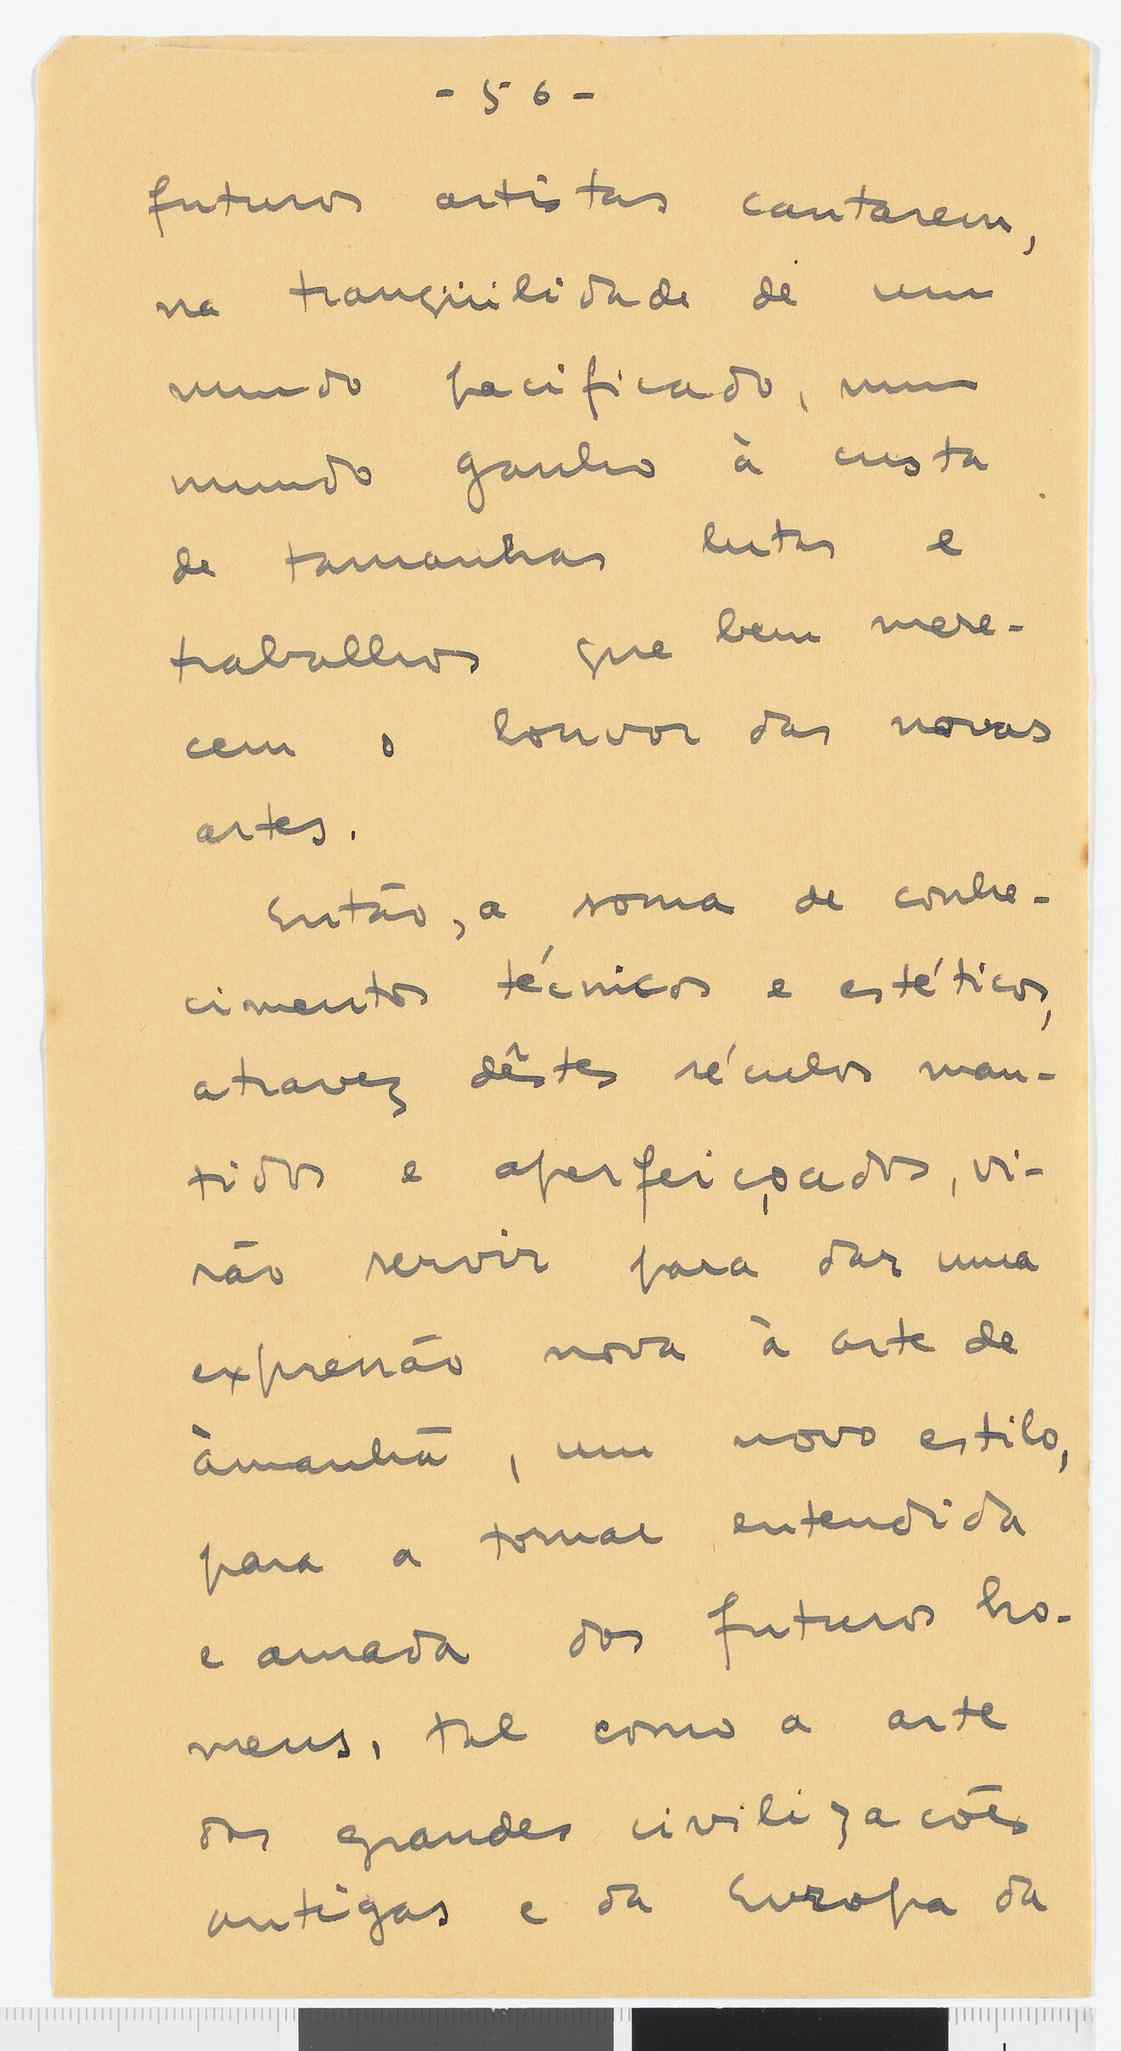 - 56 -
futuros artistas cantarem,
na tranqüilidade de um
mundo pacificado, num
mundo ganho à custa
de tamanhas lutas e
trabalhos que bem mere-
cem o louvor das novas
artes.
Então, a soma de conhe-
cimentos técnicos e estéticos,
atravez dêstes séculos man-
tidos e aperfeiçoados, vi-
rão servir para dar uma
expressão nova à arte de
àmanhã, um novo estilo,
para a tornar entendida
e amada dos futuros ho-
mens, tal como a arte
das grandes civilizacões
antigas e da Europa da